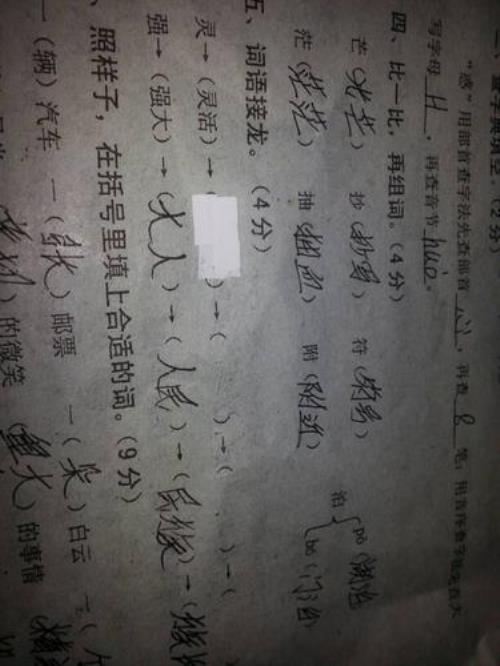 “惑”用部首查字法先查部首 心，再查 8 笔；用音序查字法先查大
写字母 H，再查音节 huò。
四、比一比，再组词。（4分）
芒（光芒） 抄（抄写） 符（符号） 泊 pō（湖泊）
茫（茫茫） 抽（抽血） 附（附近） bó（门泊）
五、词语接龙。（4分）
灵→（灵活）→（ ）→（ ）→（ ）→（
强→（强大）→（大人）→（人民）→（民族）→（族
、照样子，在括号里填上合适的词。（9分）
一（辆）汽车 一（张）邮票 一（朵）白云 一（
）的微笑 （重大）的事情